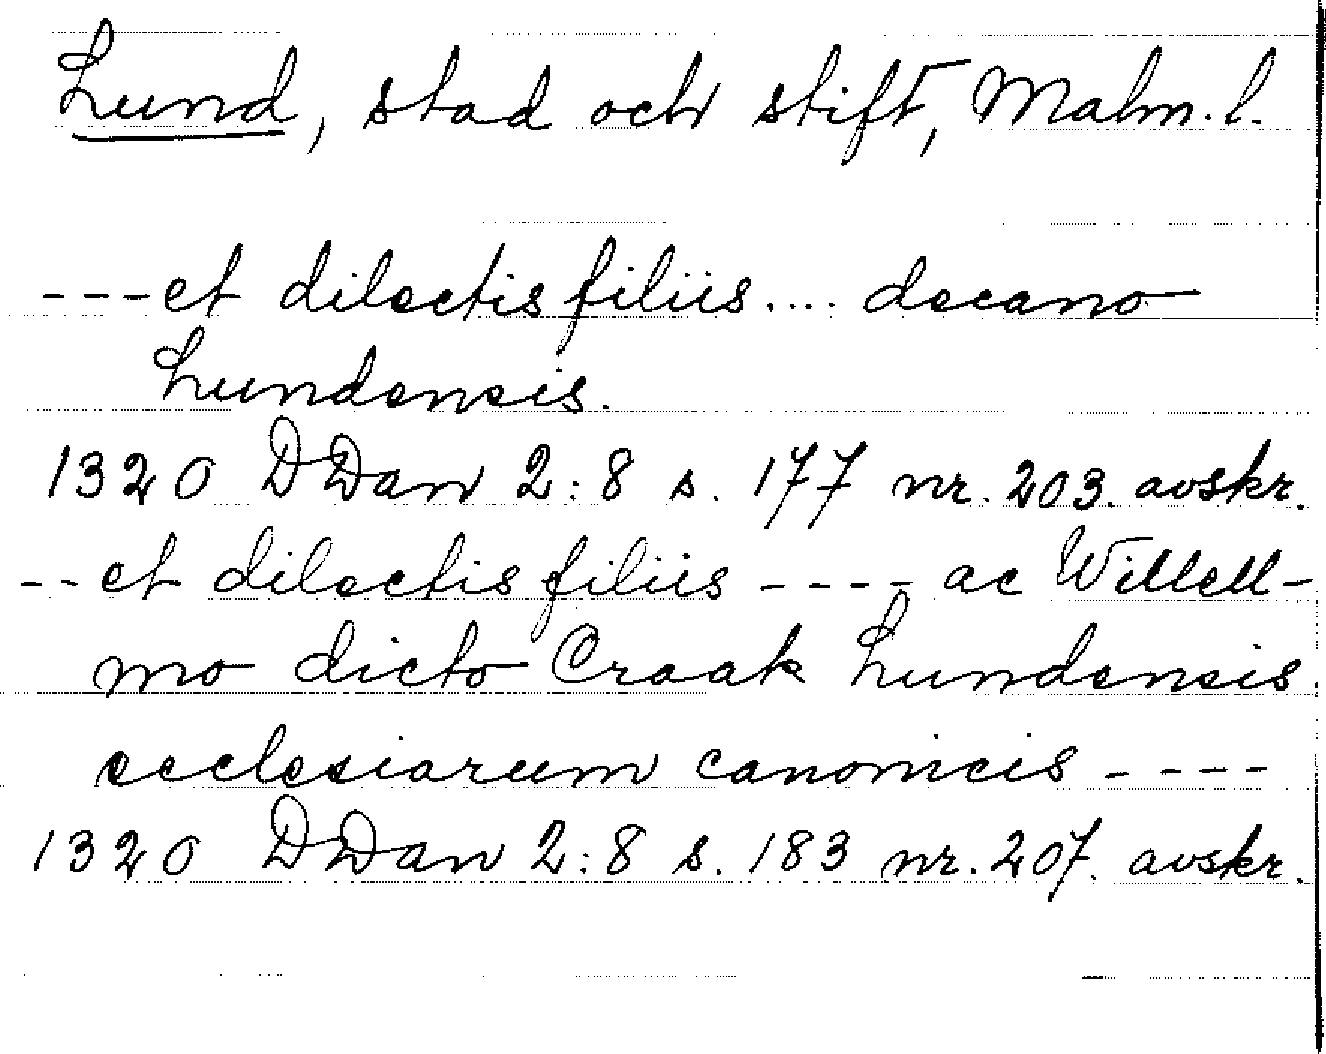 Lund, stad och stift, Malm. l.
---et dilectis filiis.... decano
Lundensis.
1320 DDan 2:8 s. 177 nr. 203. avskr.
--et dilectis filiis ---- ac Willell-
mo dicto Craak Lundensis.
ecclesiarum canonicis ----
1320 DDan 2:8 s. 183 nr. 207. avskr.